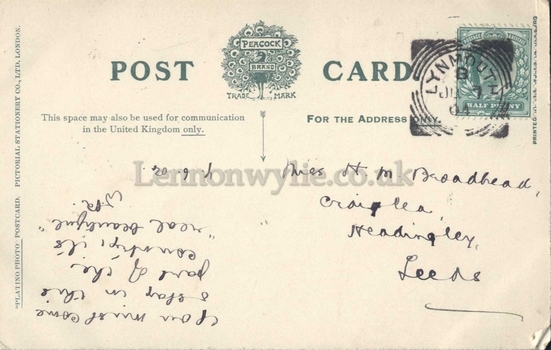 POST CARD
PEACOCK
BRAND
TRADE MARK
This space may also be used for communication
in the United Kingdom only.
FOR THE ADDRESS ONLY.
"PLATINO-PHOTO" POSTCARD. PICTORIAL STATIONERY CO., LTD, LONDON.
PRINTED
LYNMOUTH
B
JU 7
HALF PENNY
Lennonwylie.co.uk
Miss H M Broadhead,
Craig Lea,
Headingley,
Leeds
You must come
& stay in this
part of the
country, it's
"real beautiful"